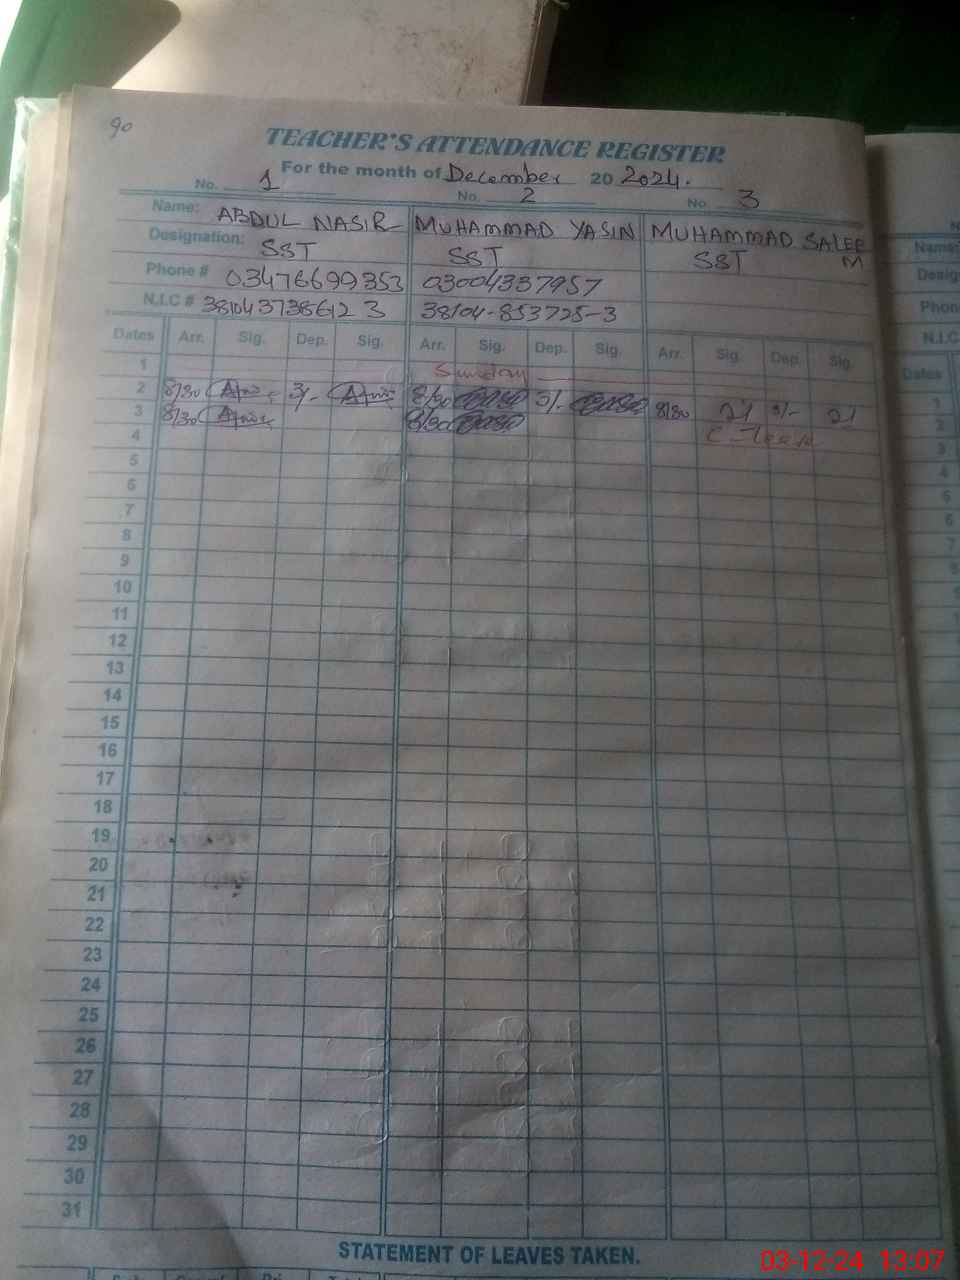 90
TEACHER'S ATTENDANCE REGISTER
For the month of December 20 2024.
No. 1 No. 2 No. 3
Name: ABDUL NASIR MUHAMMAD YASIN MUHAMMAD SALEEM
Designation: SST SST SST
Phone # 03476699353 03004337957
N.I.C # 38104-853725-3
Dates Arr. Sig. Dep. Sig. Arr. Sig. Dep. Sig. Arr. Sig. Dep. Sig.
1 Sunday
2 8/30 3/- 8/30 3/- 8/30 3/-
3 8/30 8/30 C-leave
4
5
6
7
8
9
10
11
12
13
14
15
16
17
18
19
20
21
22
23
24
25
26
27
28
29
30
31
STATEMENT OF LEAVES TAKEN.
Name:
Desig
Phon
N.I.C
Dates
1
2
3
4
03-12-24 13:07